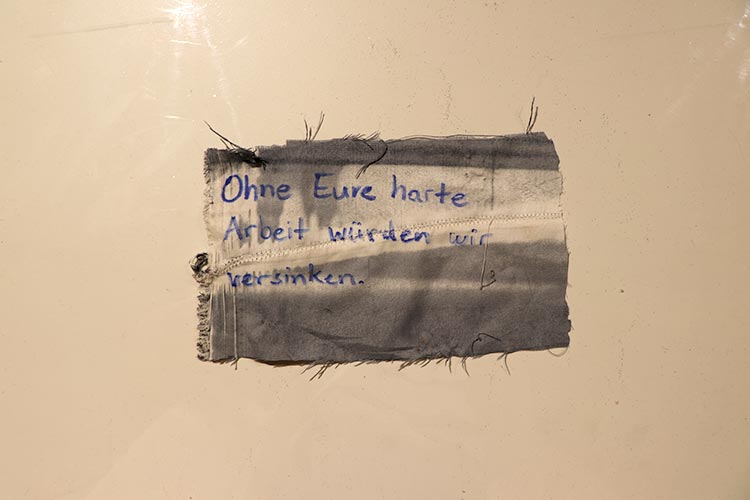 Ohne Eure harte
Arbeit würden wir
versinken.